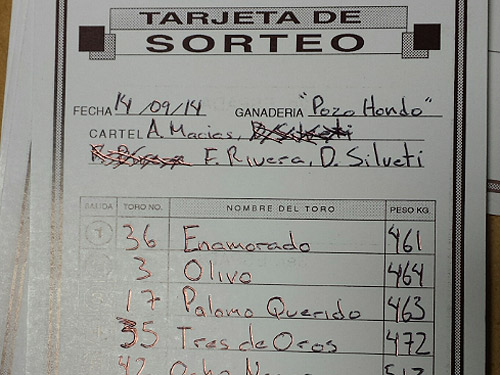 TARJETA DE
SORTEO
FECHA 14/09/14 GANADERIA "Pozo Hondo"
CARTEL A. Macias,
E. Rivera, D. Silveti
SALIDA TORO NO. NOMBRE DEL TORO PESO KG.
1 36 Enamorado 461
3 Olivo 464
17 Palomo Querido 463
35 Tres de Oros 472
42